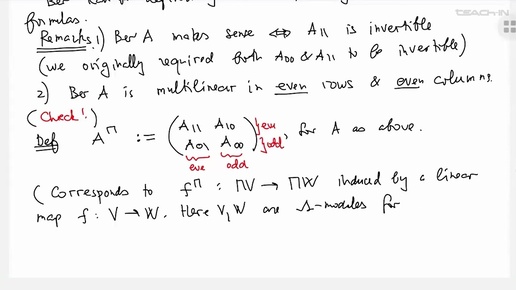 TEACH-IN
formulas.
Remarks 1) Ber A makes sense ⇔ A₁₁ is invertible
(we originally required both A₀₀ & A₁₁ to be invertible)
2) Ber A is multilinear in even rows & even columns.
(Check!)
Def A^Π := ( A₁₁ A₁₀ } eve
A₀₁ A₀₀ ) } odd , for A as above.
eve odd
(Corresponds to f^Π : ΠV → ΠW induced by a linear
map f : V → W. Here V, W are Λ-modules for